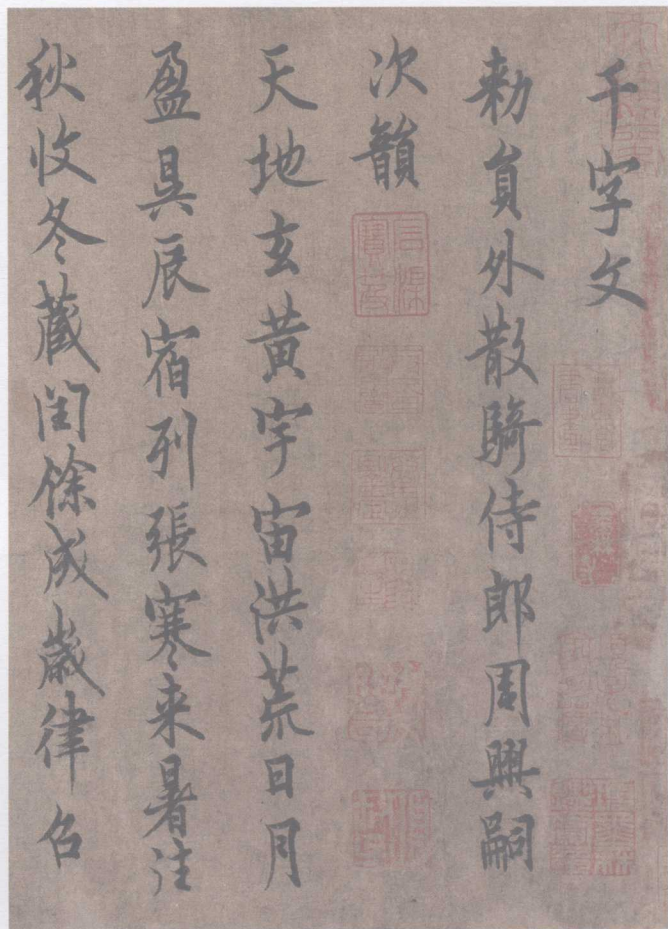 千字文
勑員外散騎侍郎周興嗣
次韻
天地玄黄宇宙洪荒日月
盈昃辰宿列張寒来暑往
秋收冬蔵閏餘成歲律召